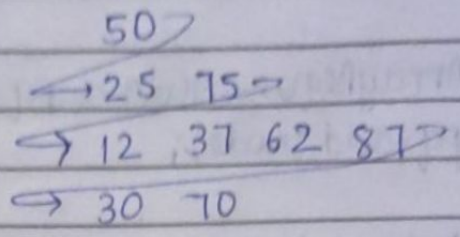 50
→25 75
→ 12 37 62 87
→ 30 70